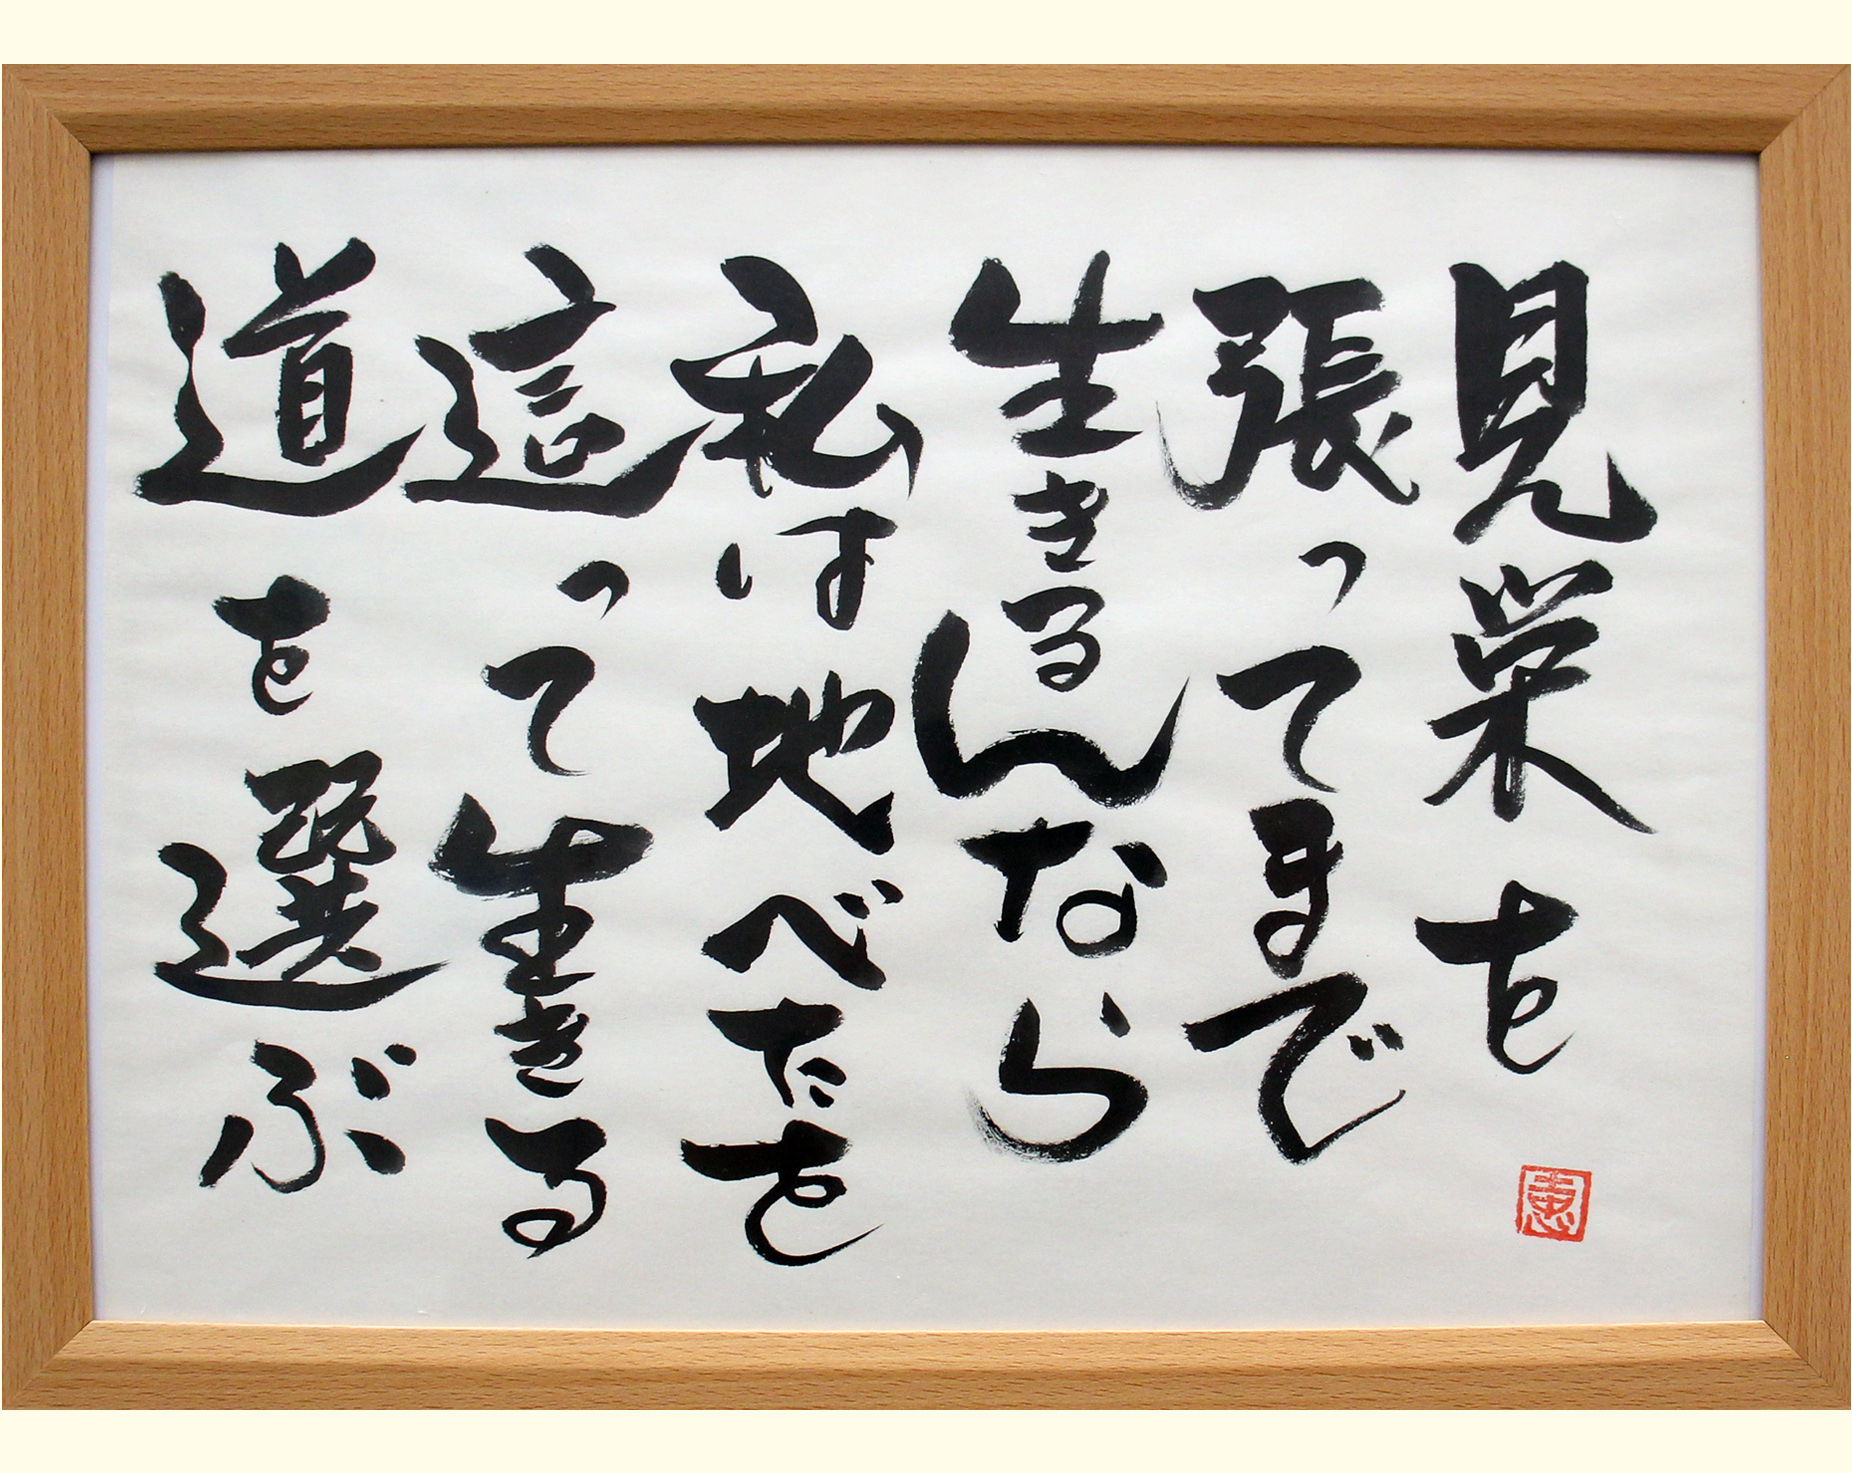 見栄を
張ってまで
生きるんなら
私は地べたを
這って生きる
道を選ぶ
恵